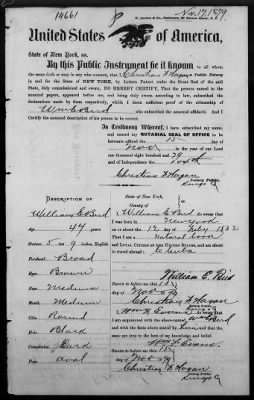 14661
Nov 17. 1879.
United States of America.
State of New York, ss.
By this Public Instrument be it known to all
to whom the same doth or may in any wise concern, that I Christian F Hagan Public Notary
in and for the State of NEW YORK, by Letters Patent under the Great Seal of the said
State, duly commissioned and sworn, DO HEREBY CERTIFY, That the persons named in the
annexed papers, appeared before me, and being duly sworn according to law, subscribed the
declaration made by them respectively, which I deem sufficient proof of the citizenship of
Wm E Bird And I
Certify the annexed description of his person to be correct.
In Testimony Whereof, I have subscribed my name, and
caused my NOTARIAL SEAL OF OFFICE to be
hereunto affixed the 15
Nov in the year of our Lord
one thousand eight hundred and 79
Christian F Hagan
Notary Public
Kings Co
DESCRIPTION OF
William E Bird
Age, 44 years
Stature, 5 ft 9 inches, English
Forehead, Broad
Eyes, Brown
Nose, Medium
Mouth, Medium
Chin, Round
Hair, Black
Complexion, Dark
Face, oval
State of New York,
County of
I William E Bird do swear
that I was born in New York
on or about the 12 day of Feby 1832
that I am a natural born
and LOYAL CITIZEN of the UNITED STATES, and am about
to Cuba
William E. Bird
Sworn to before me, this 15
day of Nov 1879
Christian F Hagan
I Wm F Evans
am acquainted with the above-named Wm E Bird
and with the facts above stated by him, and that the
same are true to the best of my knowledge and belief.
Wm F Evans
Sworn to before me, this 15
day of Nov 1879
Christian F Hagan
Notary Public
Kings Co